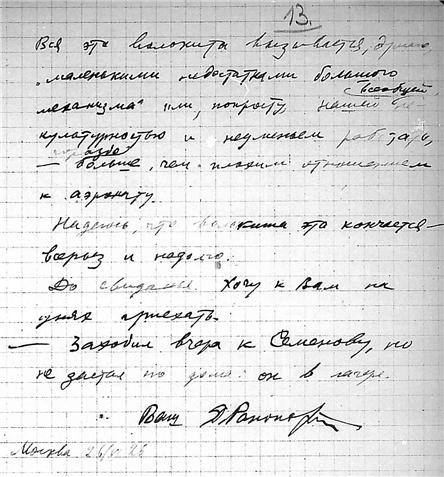 13.
Вся эта волокита вызывается, думаю,
"маленькими недостатками большого
механизма" или, попросту, нашей всеобщей
культурностью и неуменьем работать,
— гораздо больше, чем плохим отношением
к аэронавту.
Надеюсь, что волокита эта кончается —
всерьез и надолго.
До свиданья. Хочу к Вам на
днях приехать.
— Заходил вчера к Семенову, но
не застал его дома: он в лагере.
Ваш
Москва 26/